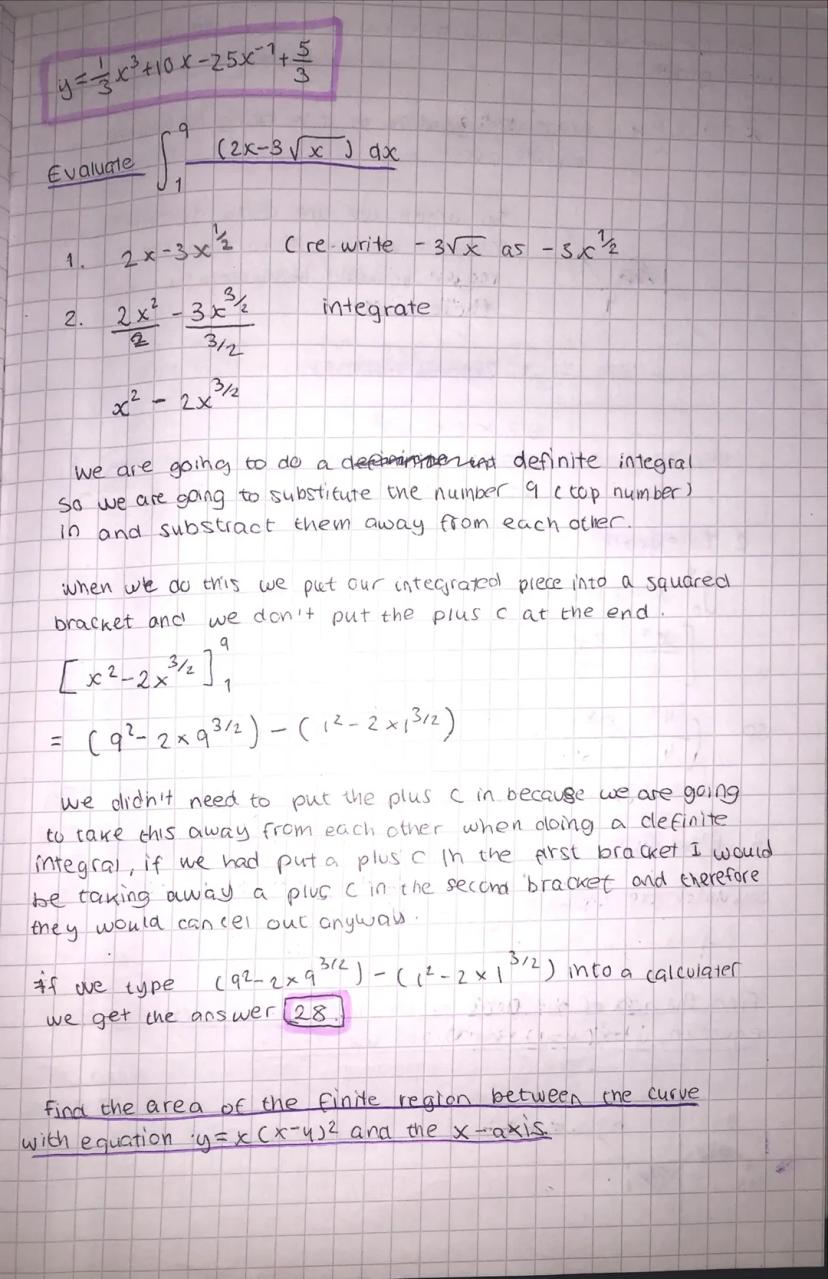 y = 1/3 x³ + 10x - 25x⁻¹ + 5/3
Evaluate ∫₁⁹ (2x-3√x) dx
1. 2x - 3x^½ (re-write - 3√x as - 3x^½
2. 2x²/2 - 3x^3/2 / 3/2 integrate
x² - 2x^3/2
we are going to do a definite integral
so we are gong to substitute the number 9 (top number)
in and substract them away from each other.
when we do this we put our integrated piece into a squared
bracket and we don't put the plus c at the end.
[x² - 2x^3/2]₁⁹
= (9² - 2 × 9^3/2) - (1² - 2 × 1^3/2)
we didn't need to put the plus c in because we are going
to take this away from each other when doing a definite
integral, if we had put a plus c in the first bracket I would
be taking away a plus c in the second bracket and therefore
they would cancel out anyway.
if we type (9² - 2 × 9^3/2) - (1² - 2 × 1^3/2) into a calculater
we get the answer 28.
Find the area of the finite region between the curve
with equation y = x(x-4)² and the x-axis.